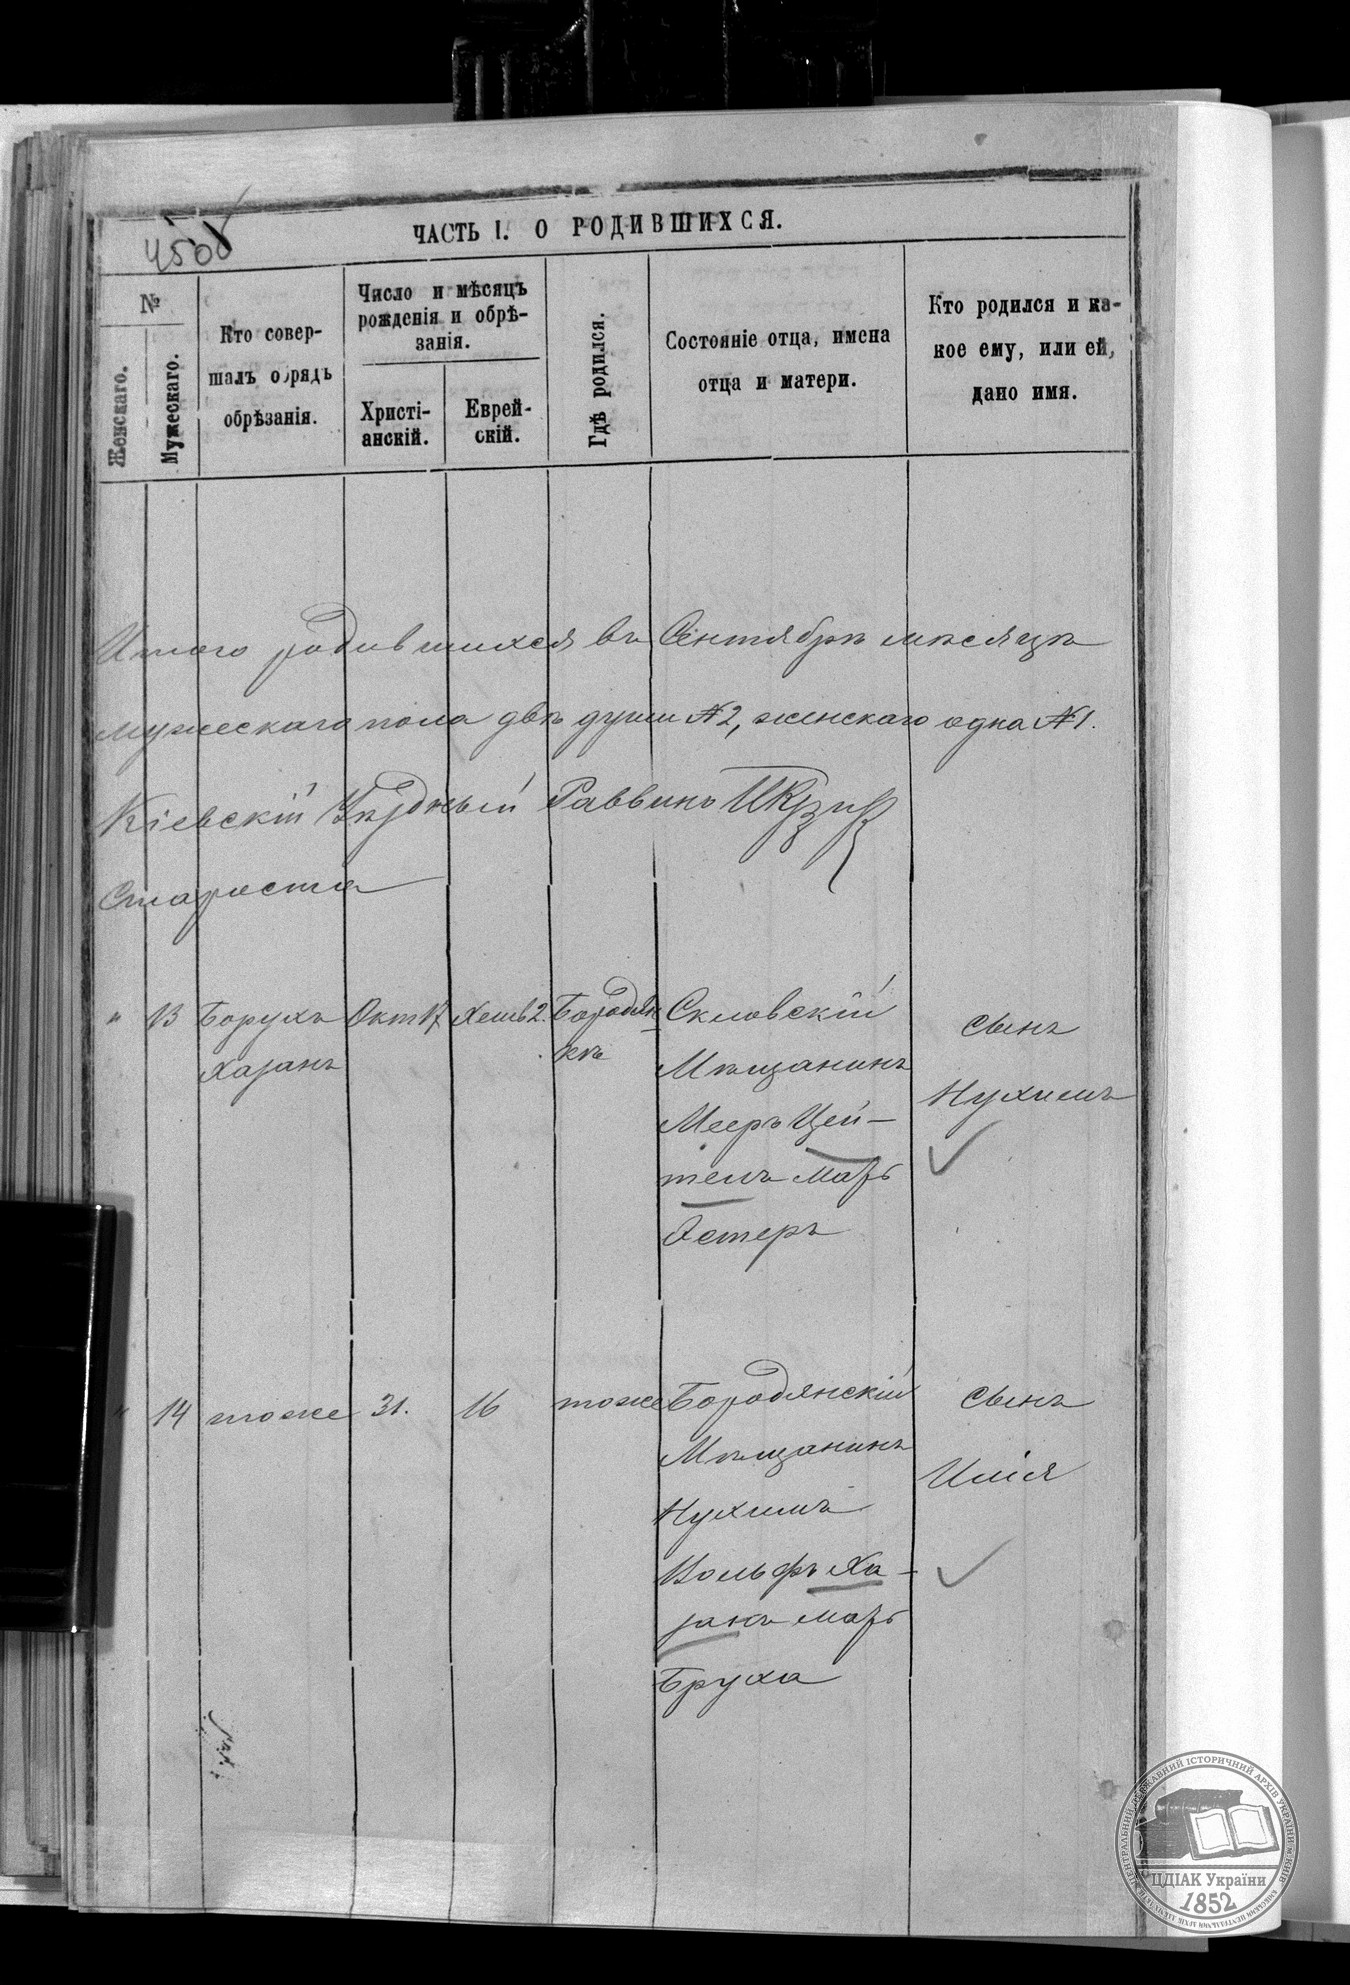 450
ЧАСТЬ I. О РОДИВШИХСЯ.
№
Женскаго.
Мужескаго.
Кто совер-
шалъ обрядъ
обрѣзанія.
Число и мѣсяцъ
рожденія и обрѣ-
занія.
Христі-
анскій.
Еврей-
скій.
Гдѣ родился.
Состояніе отца, имена
отца и матери.
Кто родился и ка-
кое ему, или ей,
дано имя.
Итого родившихся въ Сентябрѣ мѣсяцѣ
мужескаго пола двѣ души №2, женскаго одна №1.
Кіевскій Уѣздный Раввинъ
Староста
" 13 Борухъ Окт 17 Хешв 2. Бородян- Сквовскій сынъ
Хазанъ кѣ Мѣщанинъ
Нухимъ
Мееръ Цей-
тель Матрь
Эстеръ
" 14 тоже 31. 16 тоже Бородянскій сынъ
Мѣщанинъ
Илія
Нухимъ
Вольфъ Ха-
занъ матрь
Бруха
ЦЕНТРАЛЬНИЙ ДЕРЖАВНИЙ ІСТОРИЧНИЙ АРХІВ УКРАЇНИ М.КИЇВ
ЦДІАК України
1852